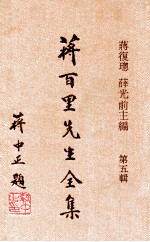 蔣復璁 薛光前主編 第五輯
蔣百里先生全集
蔣中正題